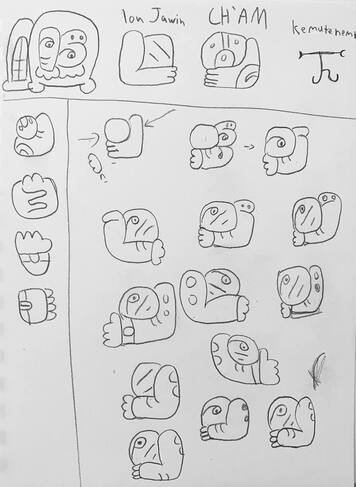 Ion Jawin
CH'AM
Kemutenemt